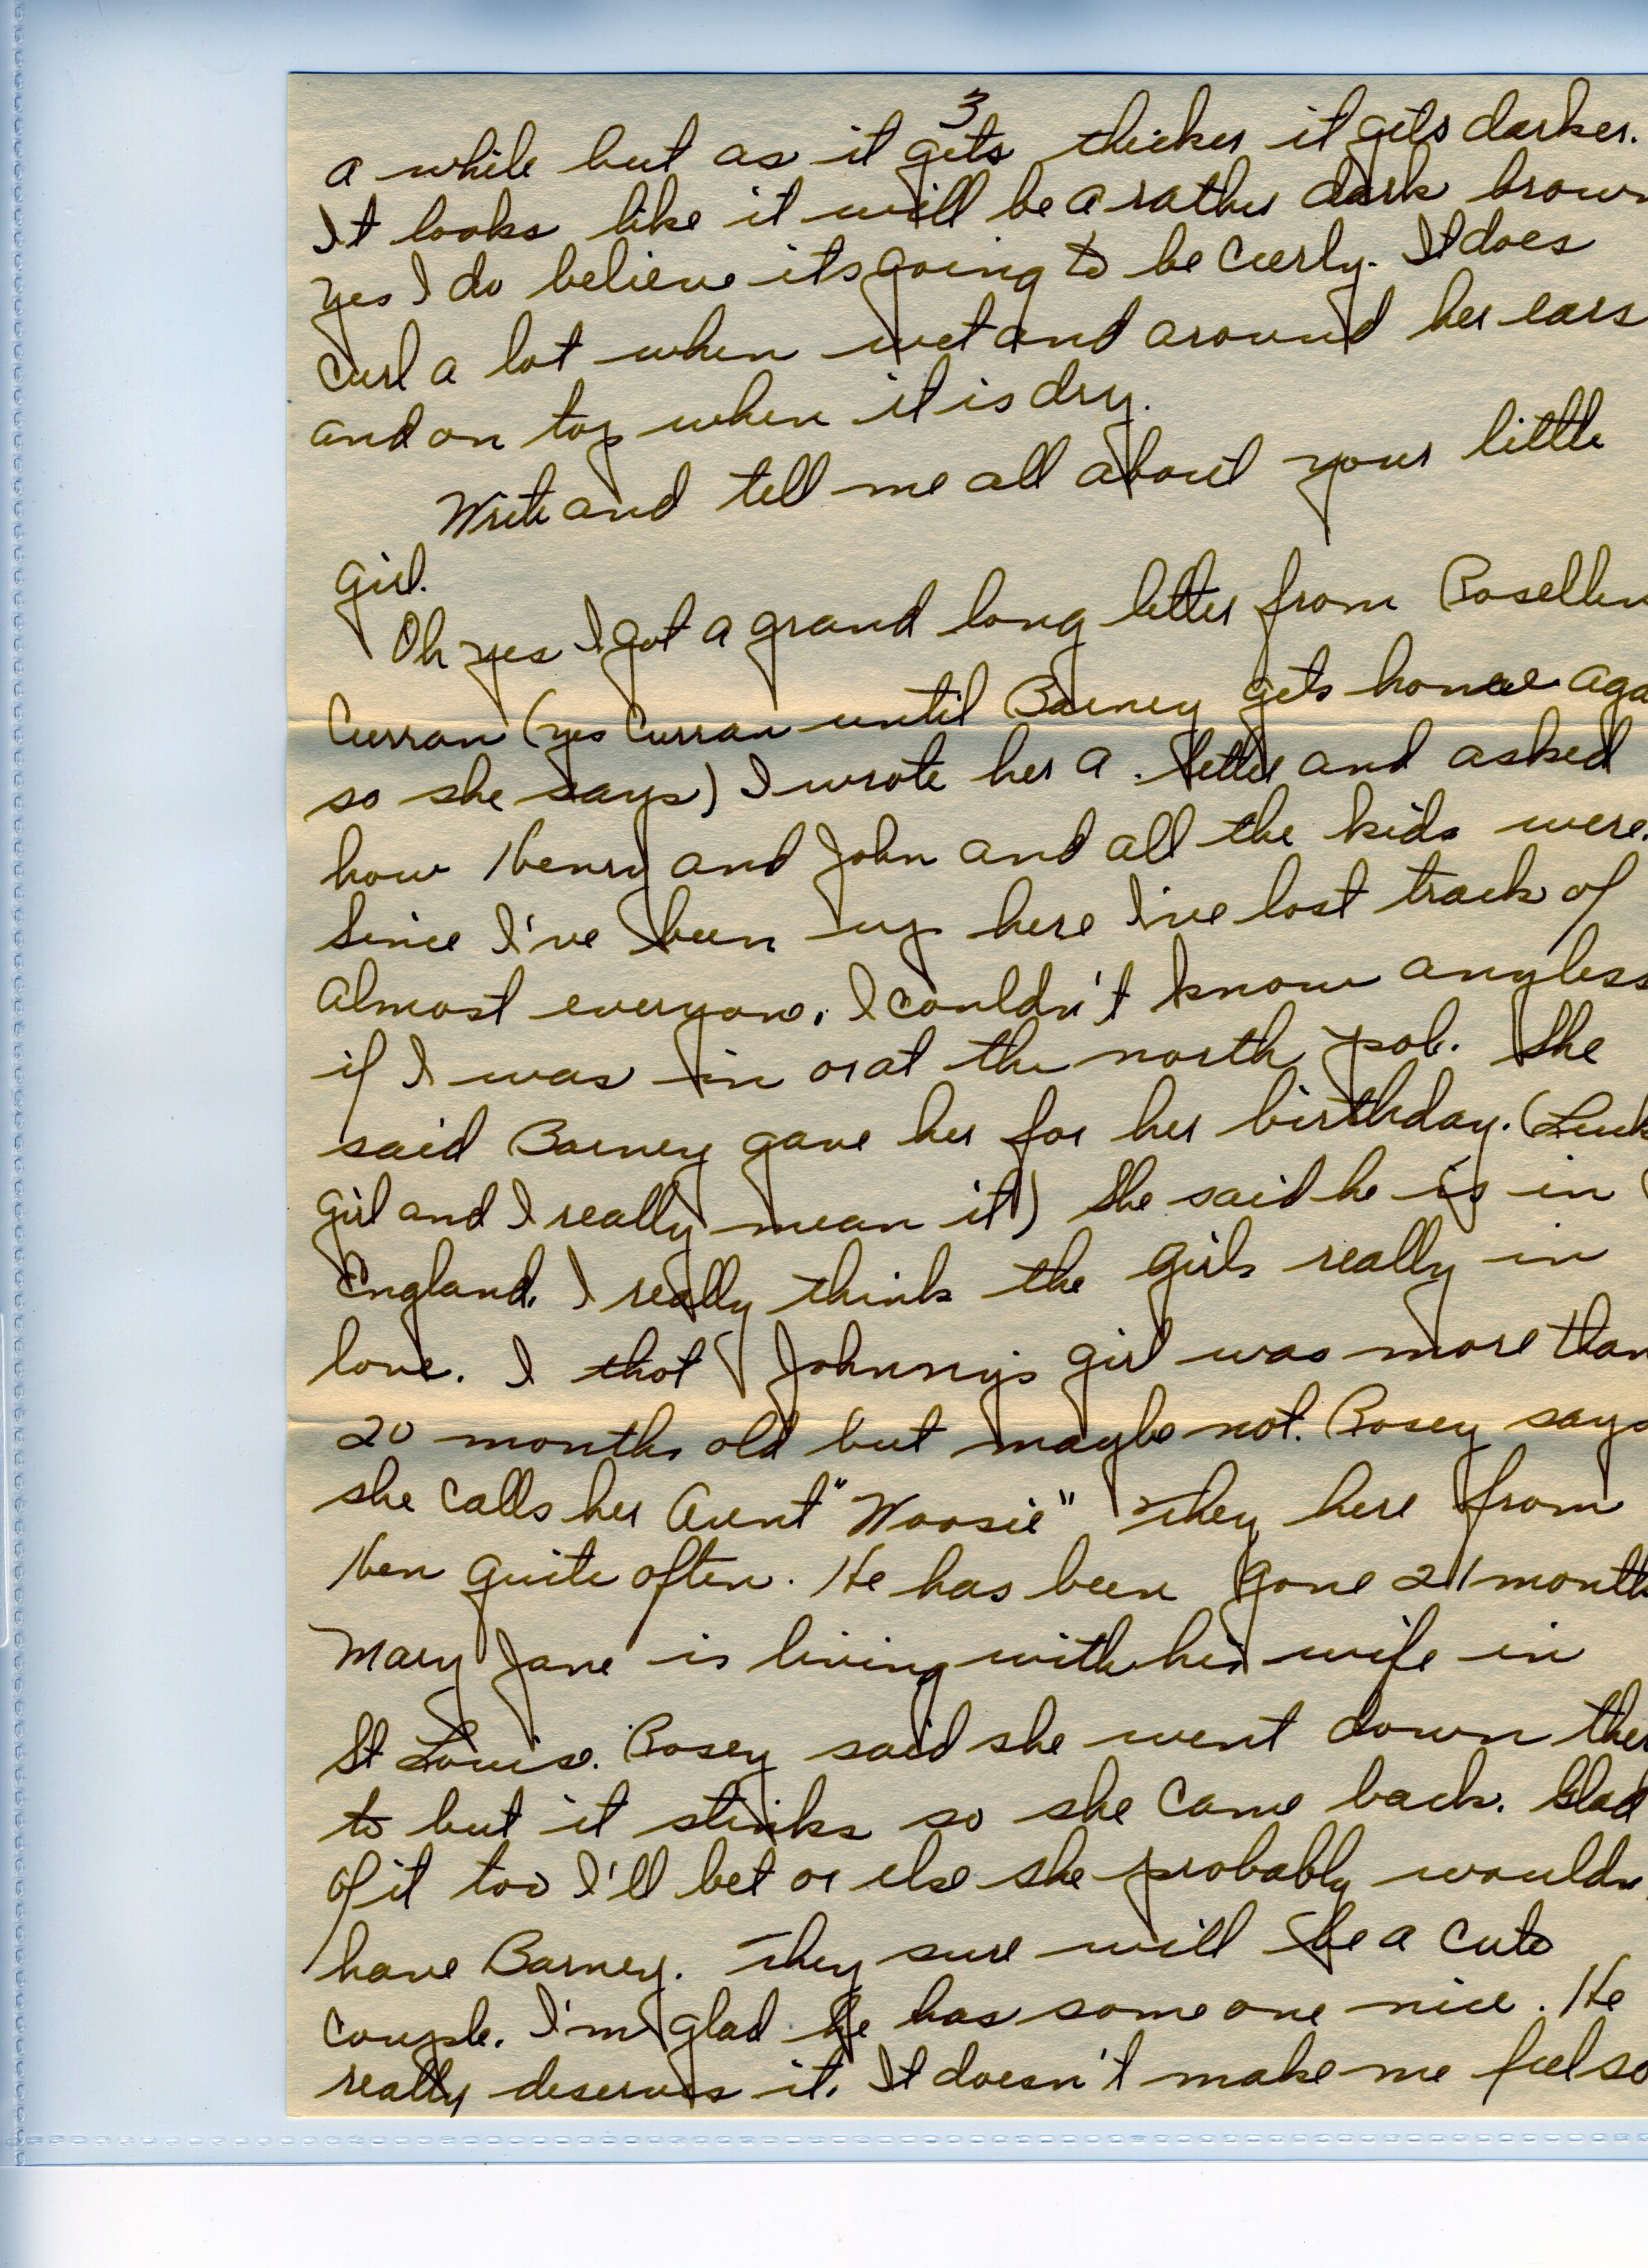 3
a while but as it gets thicker it gets darker.
It looks like it will be a rather dark brown
yes I do believe its going to be curly. It does
curl a lot when wet and around her ears
and on top when it is dry.
Write and tell me all about your little
girl.
Oh yes I got a grand long letter from Rosellen
Curran (yes Curran until Barney gets home aga
so she says) I wrote her a letter and asked
how Henry and John and all the kids were.
Since I've been up here I've lost track of
almost everyone. I couldn't know anyless
if I was in or at the north pole. She
said Barney gave her for her birthday. (Luck
girl and I really mean it) She said he is in
England. I really think the girls really in
love. I thot Johnny's girl was more than
20 months old but maybe not. Rosey says
she calls her Aunt "Woosie" They here from
Hen quite often. He has been gone 21 month
Mary Jane is living with his wife in
St Louis. Rosey said she went down ther
to but it stinks so she came back. Glad
of it too I'll bet or else she probably wouldn
have Barney. They sure will be a cute
couple. I'm glad he has someone nice. He
really deserves it. It doesn't make me feel so